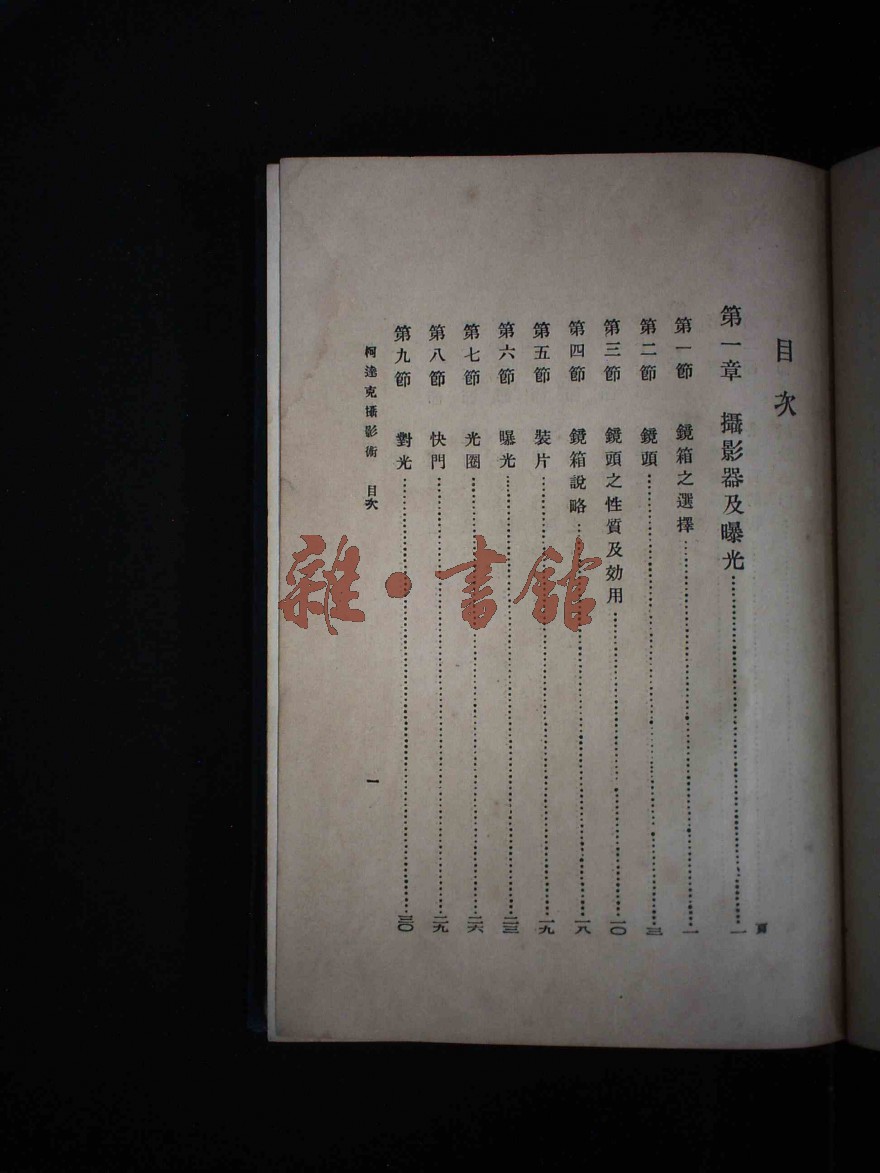 目次
頁
第一章 攝影器及曝光……一
第一節 鏡箱之選擇……一
第二節 鏡頭……三
第三節 鏡頭之性質及効用……一〇
第四節 鏡箱說略……一八
第五節 裝片……一九
第六節 曝光……二三
第七節 光圈……二六
第八節 快門……二九
第九節 對光……三〇
柯達克攝影術 目次 一
雜·書館